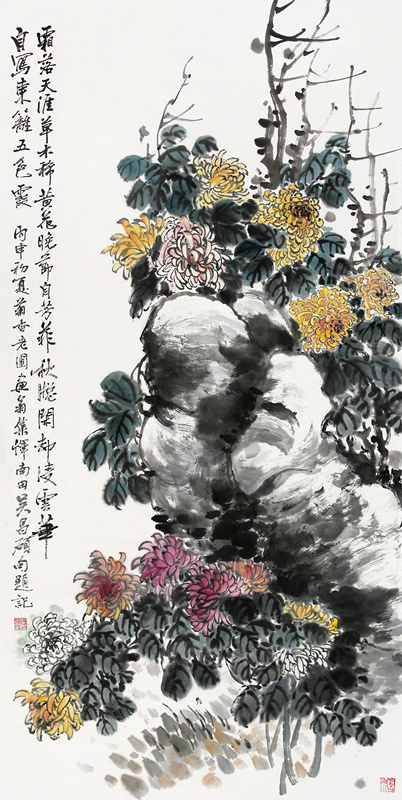 霜落天涯草木稀黄花晚節自芳菲秋牕閑却凌雲筆
自寫東籬五色霞 丙申初夏菊香老圃畫翁集惲南田吴昌碩句題記